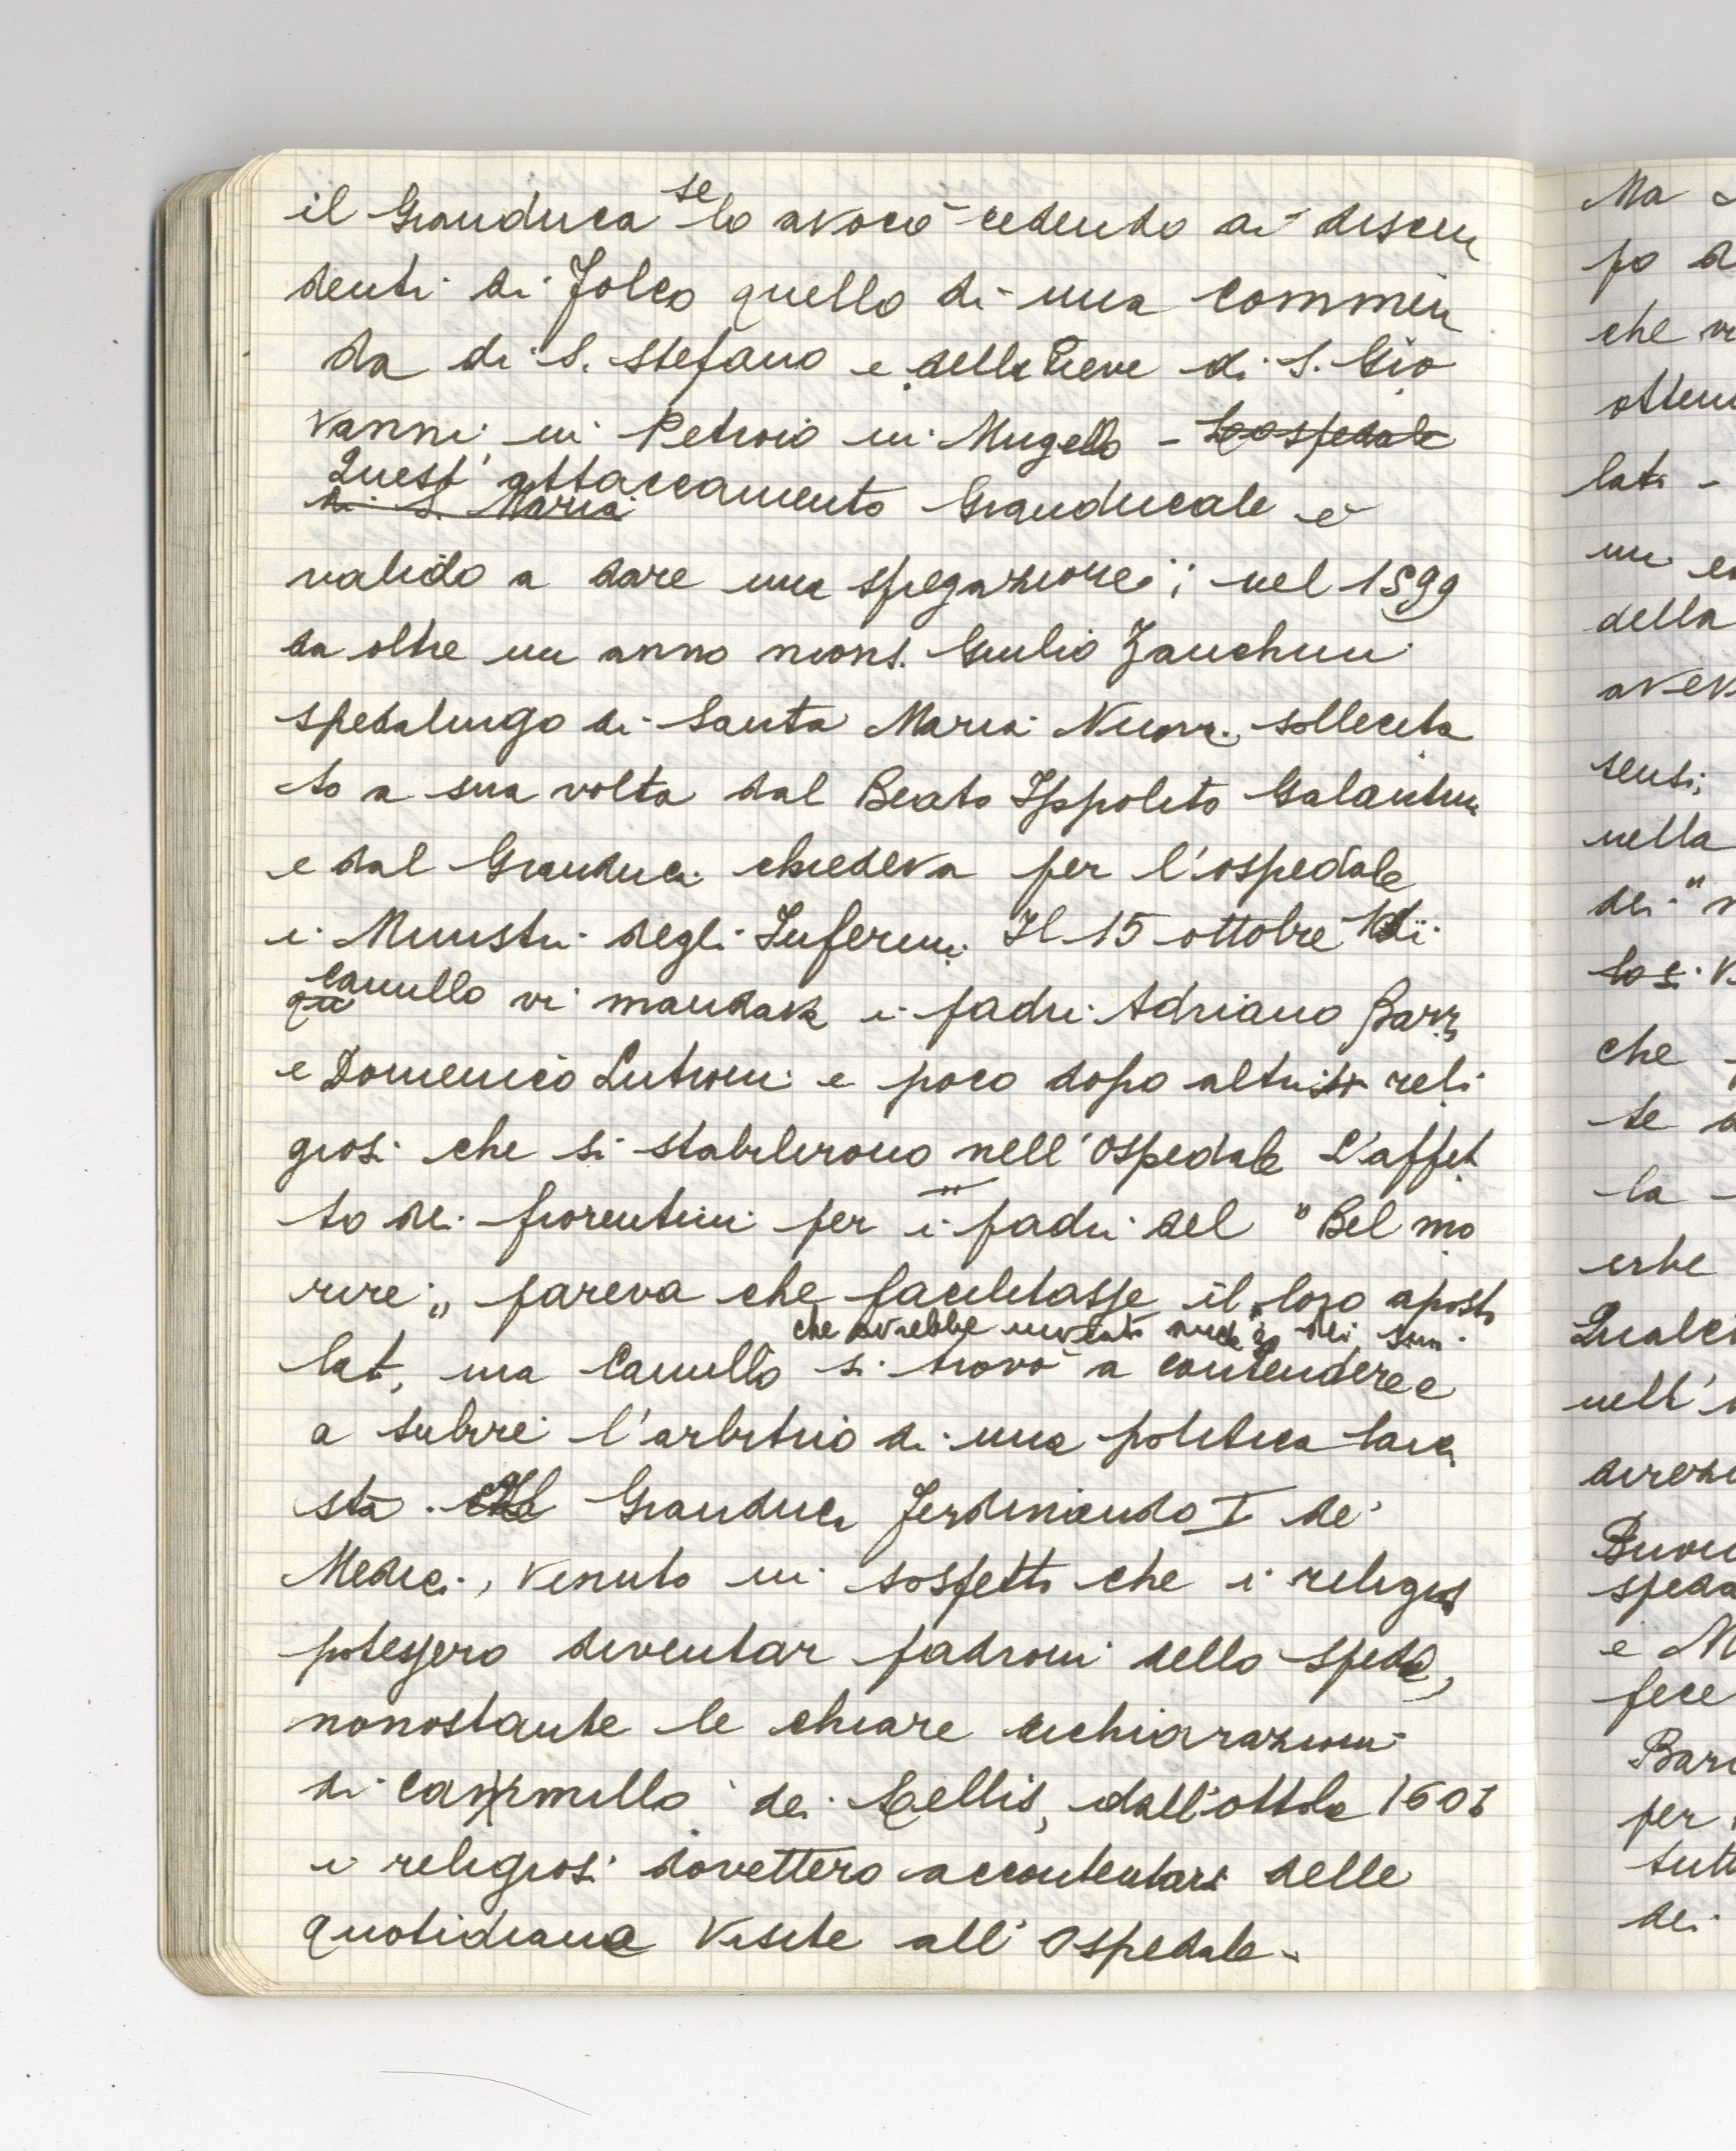 il Granduca se lo avocò cedendo ai discen
denti di Folco quello di una commen
da di S. Stefano e della Pieve di S. Gio
vanni in Petroio in Mugello - L'ospedale
di S. Maria
Quest'attaccamento Granducale è
valido a dare una spiegazione; nel 1599
da oltre un anno mons. Giulio Zanchini
spedalingo di Santa Maria Nuova, sollecita
to a sua volta dal Beato Ippolito Galantini
e dal Granduca chiedeva per l'ospedale
i Ministri degli Infermi. Il 15 ottobre
Camillo vi mandava i padri Adriano Barra
e Domenico Lutroni e poco dopo altri reli
giosi che si stabilirono nell'Ospedale L'affet
to dei fiorentini per i padri del "Bel mo
rire", pareva che facilitasse il loro aposto
lat, ma Camillo si trovò a contendere e
che avrebbe dei suoi
a subire l'arbitrio di una politica laici
sta. Granduca Ferdinando I de'
Medici, venuto in sospetto che i religiosi
potessero diventar padroni dello speda,
nonostante le chiare dichiarazioni
di Cammillo dei Lellis, dall'ottobre 1601
i religiosi dovettero accontentarsi delle
quotidiane visite all'Ospedale -
Ma
po
che
ottenu
lati -
un
della
avev
sensi;
nella
dei "
che
te
la
erbe
Qualc
nell'
direzi
speda
e
fece
Bar
per
tutt
dei